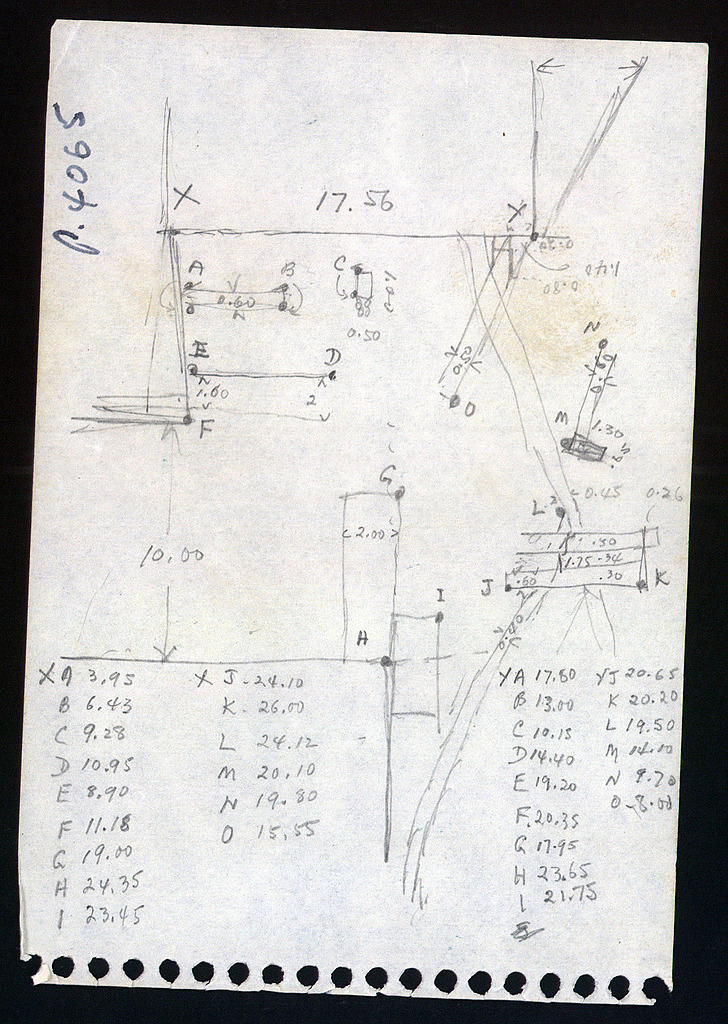 P.4065
X 17.56 Y
A B C
0.60
1.00
0.50
0.30
1.40
0.30
N
E D
1.60 2
F
0.50
O
0.60
M 1.30
G
L 0.45 0.26
<2.00>
10.00
.50
1.75 .34
J .60 .30 K
I
0.40
H
XA 3.95
B 6.43
C 9.28
D 10.95
E 8.90
F 11.18
G 19.00
H 24.35
I 23.45
X J-24.10
K-26.00
L 24.12
M 20.10
N 19.80
O 15.55
YA 17.80
B 13.00
C 10.15
D 14.40
E 19.20
F 20.35
G 17.95
H 23.65
I 21.75
YJ 20.65
K 20.20
L 19.50
M 14.10
N 9.70
O-8.00